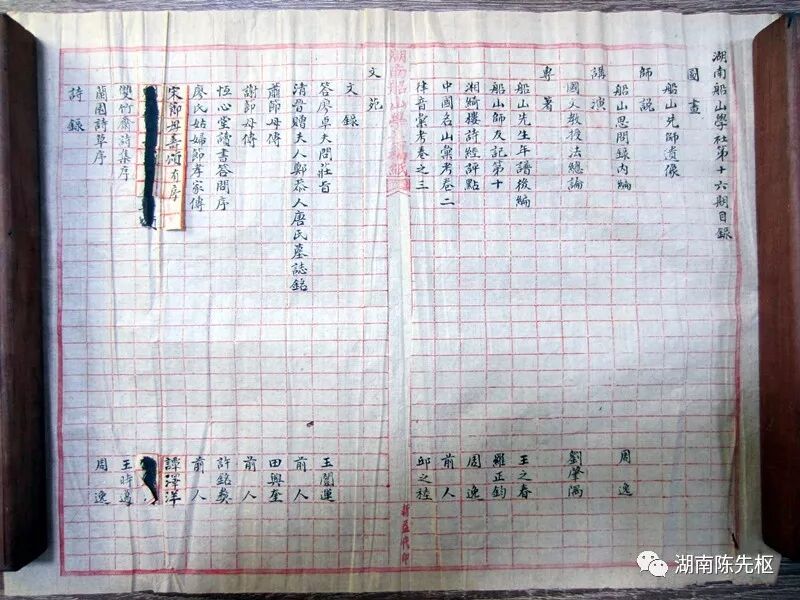 湖南船山學社第十六期目錄
國畫
船山先師遺像
師說
船山思問錄內編 周逸
講演
國文教授法總論 劉肇隅
專著
船山先生年譜後編 王之春
船山師友記第十 羅正鈞
湘綺樓詩經評點 周逸
中國名山彙考卷二 前人
律音彙考卷之三 邱之稑
湖南船山學社稿紙
文苑
文錄
答廖卓夫問莊旨 王闓運
清晉贈夫人鄭恭人唐氏墓誌銘 前人
蕭節母傳 田興奎
謝節母傳 前人
恆心堂讀書答問序 許銘彝
廖氏姑婦節孝家傳 前人
宋節母壽頌有序 譚澤洋
雙竹齋詩集序 王時邁
蘭園詩草序 周逸
詩錄
湖南陈先枢